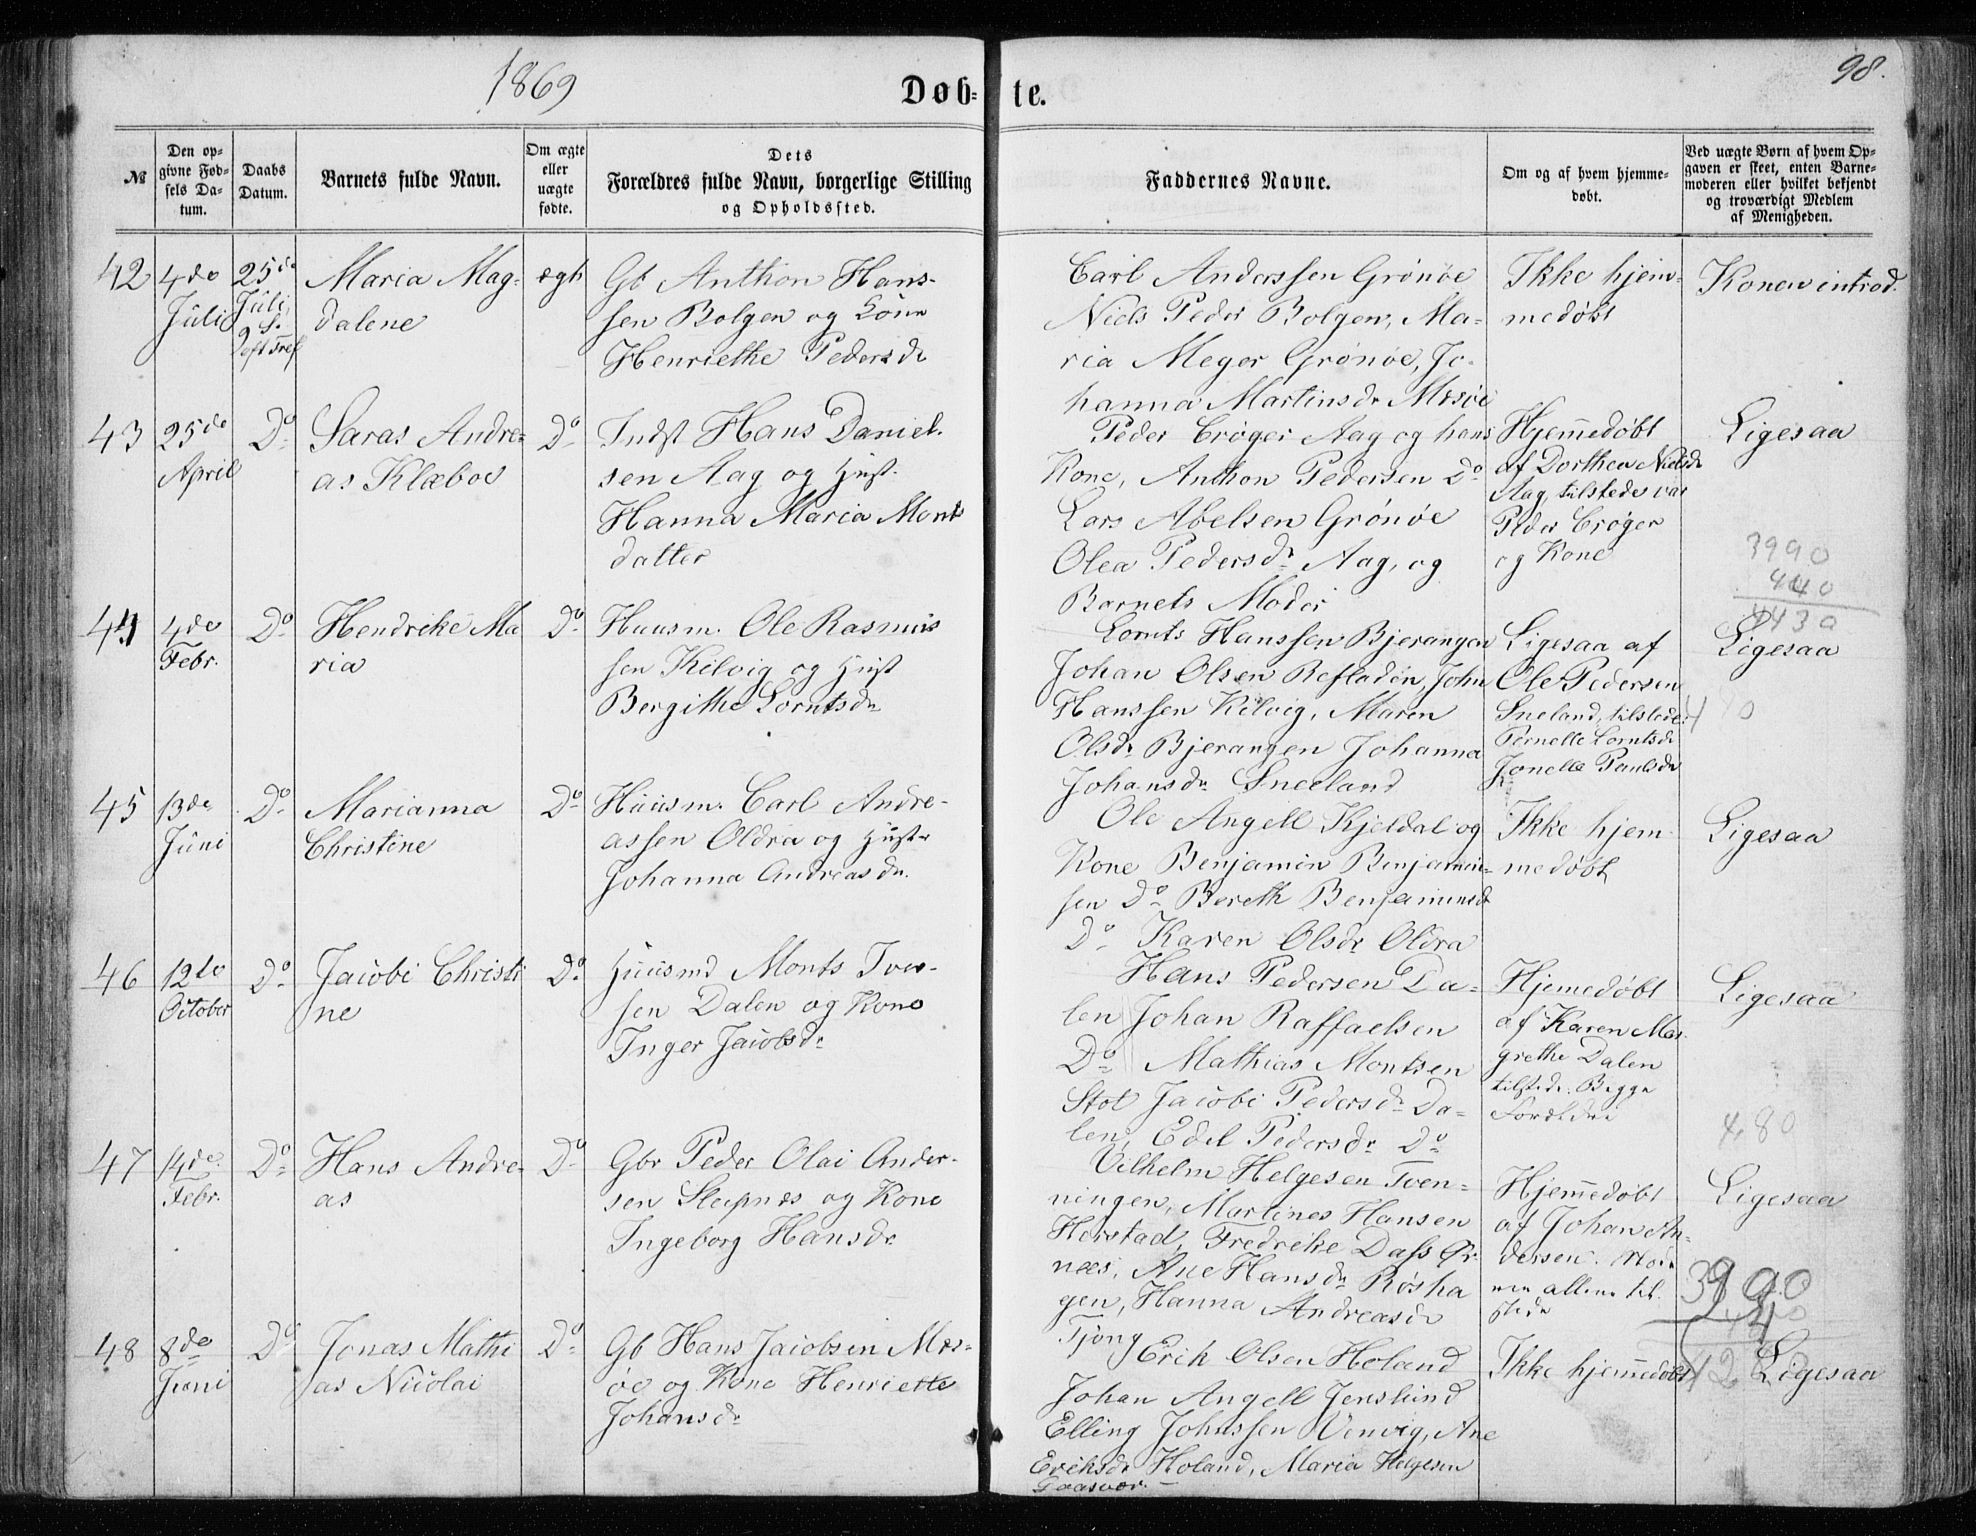 1869
98.
Døb=
te.
№
Den op=
givne Fød=
sels Da=
tum.
Daabs
Datum.
Barnets fulde Navn.
Om ægte
eller
uægte
fødte.
Dets
Forældres fulde Navn, borgerlige Stilling
og Opholdssted.
Faddernes Navne.
Om og af hvem hjemme-
døbt.
Ved uægte Børn af hvem Op=
gaven er skeet, enten Barne=
moderen eller hvilket bekjendt
og troværdigt Medlem
af Menigheden.
42
4de
Juli
25de
Juli,
9 S.
eft Tref
Maria Mag-
dalene
ægt
Gb Anthon Hans-
sen Bolgen og
Henriethe Pedersdr
Carl Anderssen Grønøe
Niels Peder Bolgen, Ma-
ria Meyer Grønøe, Jo-
hanna Martinsdr Mesøe
Ikke hjem-
medøbt
Konen introd.
43
25de
April
Do
Saras Andre-
as Klæboe
Do
Indst Hans Daniel-
sen Aag og Hust.
Hanna Maria Monts
datter
Peder Crøger Aag og hans
Kone, Anthon Pedersen Do
Lars Abelsen Grønøe
Olea Pedersdr Aag, og
Barnets Moder
Hjemmedøbt
af Dorthea Nielsdr
Aag, tilstede var
Peder Crøger
og Kone
Ligesaa
3990
440
4430
44
4de
Febr.
Do
Hendrike Ma
ria
Do
Huusm. Ole Rasmus
sen Kilvig og Hust
Bergithe Lorntsdr
Lornts Hanssen Bjerangen
Johan Olsen Refladøn, John
Hanssen Kilvig, Maren
Olsdr Bjerangen Johanna
Johansdr Sneeland
Ligesaa af
Ole Pedersen
Sneland, tilstede
Pernelle Lorntsdr
Jonelle Paulsdr
Ligesaa
45
13de
Juni
Do
Marianna
Christine
Do
Huusm. Carl Andre-
assen Oldra og Hustr
Johanna Andreasdr.
Ole Angell Kjeldal og
Kone Benjamin Benjamin-
sen Do Bereth Benjaminsdr
Do Karen Olsdr Oldra
Ikke hjem-
medøbt
Ligesaa
46
12te
October
Do
Jacobi Christi
ne
Do
Huusmd Monts Iver-
sen Dalen og Kone
Inger Jacobsdr
Hans Pedersen Da-
len Johan Raffaelsen
Do Mathias Montsen
Stot Jacobi Pedersdr Da-
len, Edel Pedersdr Do
Hjemedøbt
af Karen Mar-
grethe Dalen
tilstede. Begge
Forældre
Ligesaa
480
47
14de
Febr.
Do
Hans Andre-
as
Do
Gbr Peder Olai Ander-
sen Sleipnes og Kone
Ingeborg Hansdr
Vilhelm Helgesen Tven-
ningen, Martines Hansen
Horstad, Fredrike Dass Ør-
næs, Ane Hansdr Røsha
gen, Hanna Andreasdr
Tjong
Hjemmedøbt
af Johan An-
dersen. Mode
ren allene til
stede
Ligesaa
3990
48
8de
Juni
Do
Jonas Mathi
as Nicolai
Do
Gb Hans Jacobsen Mes-
øe og Kone Henriette
Johansdr
Erik Olsen Holand
Johan Angell Jenslund
Elling Johnssen Venvig, Ane
Eriksdr Holand, Maria Helgesen
Gaasvær. —
Ikke hjemmedøbt
Ligesaa